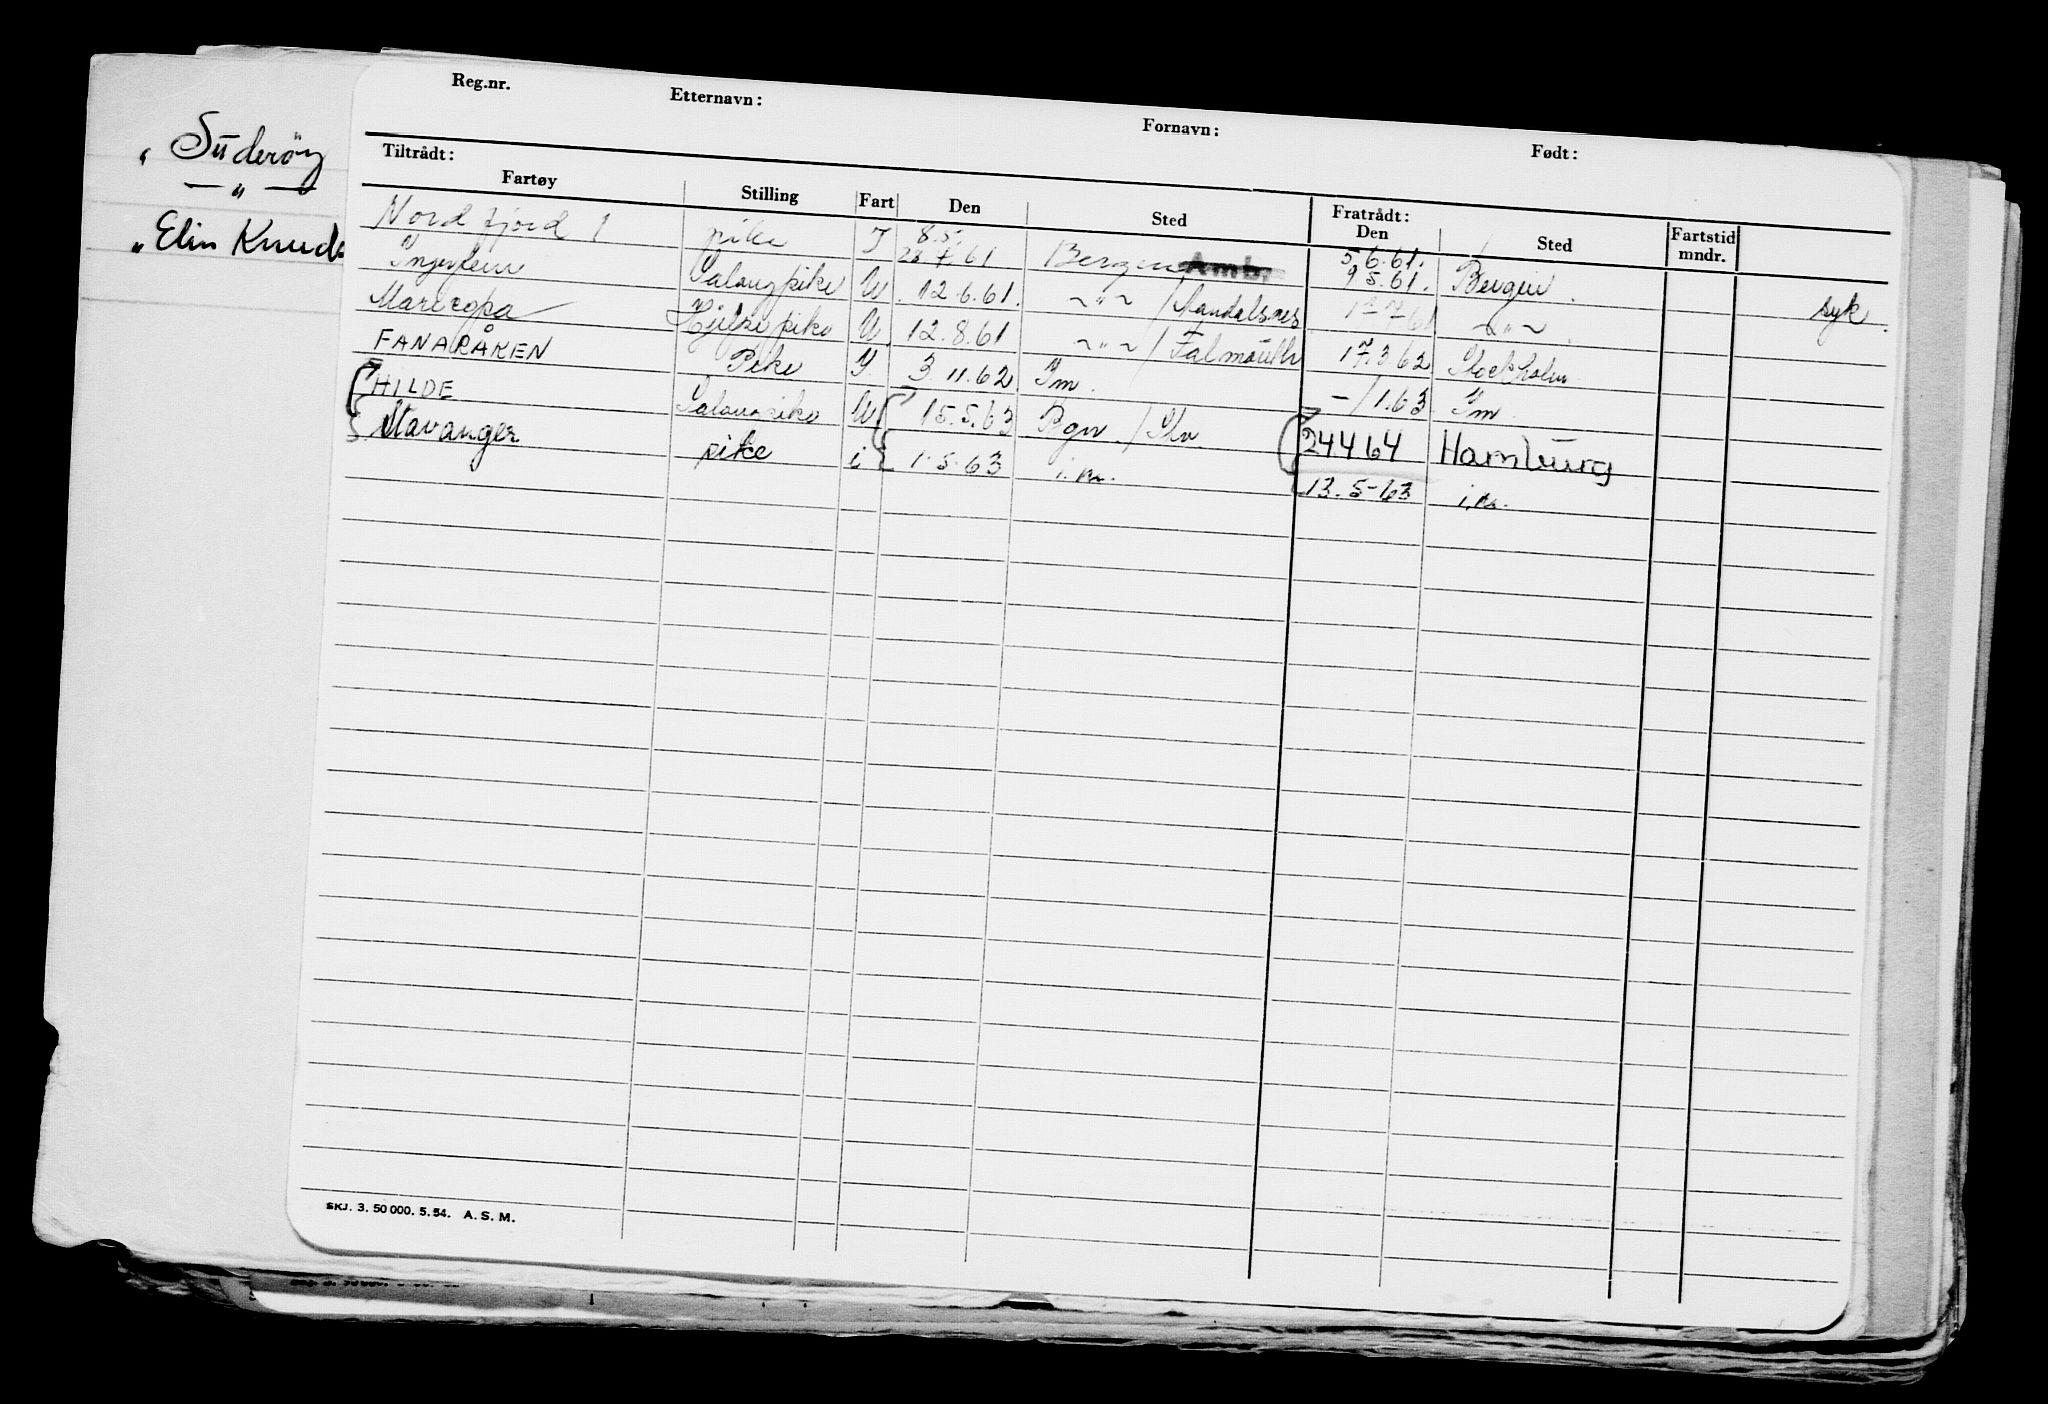 " Süderöy
— " —
" Elin Knuds
Reg.nr. Etternavn: Fornavn: Født:
Tiltrådt: Fratrådt:
Fartøy Stilling Fart Den Sted Den Sted Fartstid mndr.
Nordfjord 1 pike I 8.5. 61 Bergen 5.6.61.
Salongpike U. 12.6.61. ~"~ / Mandalsnes 9.5.61. Bergen. syk.
Maricopa Hjelpepike U. 12.8.61 ~"~ / Falmouth 61 ~"~.
FANARÅKEN Pike I 3 11.62 Im. 17.3.62 Stockholm
HILDE Salongpike U 15.5.63 Bgn / Slv -/1.63 Im.
Stavanger pike i 1.5.63 i.m. 24 4 64 Hamburg
13.5-63 i.m.
SKJ. 3. 50 000. 5. 54. A. S. M.